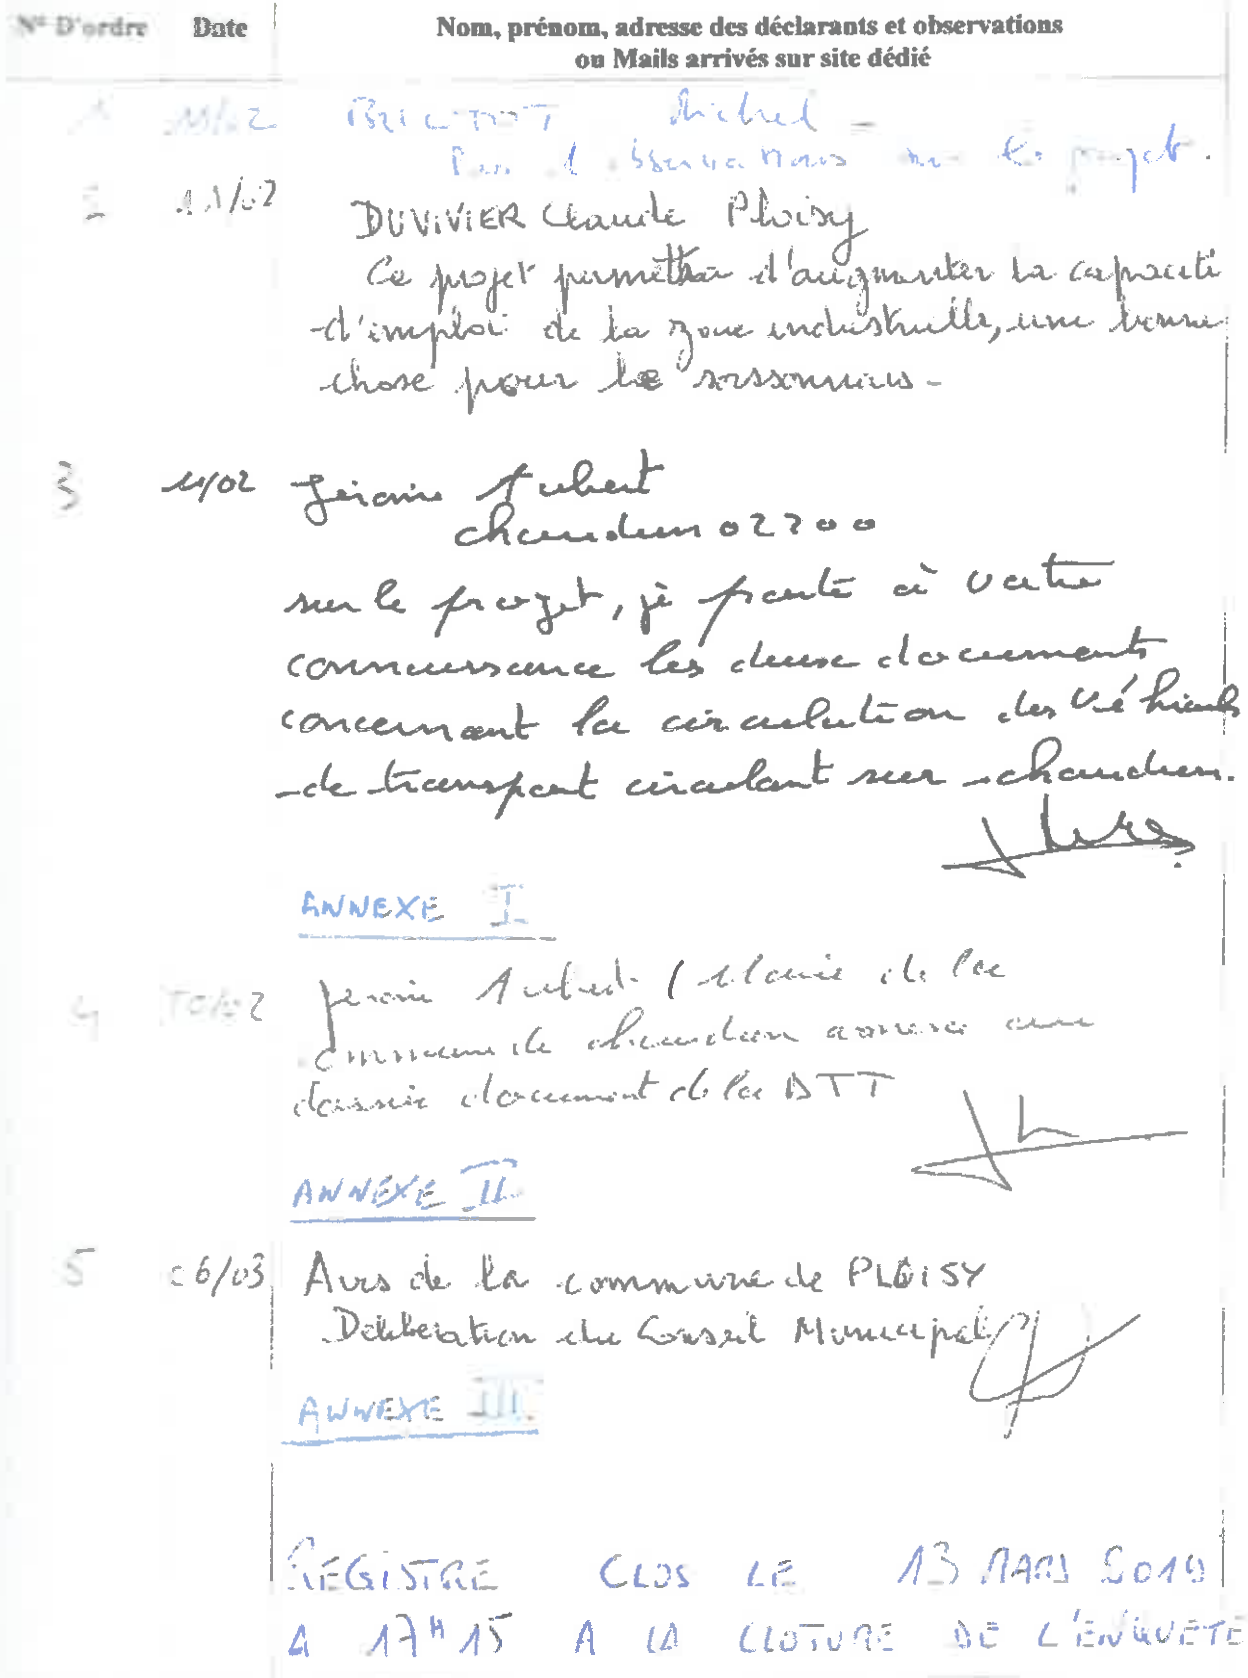 N° D'ordre Date Nom, prénom, adresse des déclarants et observations
ou Mails arrivés sur site dédié
1 11/02 Michel
Pas d'observations sur le projet.
2 11/02 DUVIVIER Claude Ploisy
Ce projet permettra d'augmenter la capacité
d'emploi de la zone industrielle, une bonne
chose pour le soissonnais -
3 11/02 Jérôme Aubert
chaudun 02200
sur le projet, je porte à votre
connaissance les deux documents
concernant la circulation des véhicules
de transport circulant sur chaudun.
ANNEXE I
4 Jérôme Aubert / Maire de la
commune de chaudun au
dossier document de la DTT
ANNEXE II
5 06/03 Avis de la commune de PLOISY
Délibération du Conseil Municipal
ANNEXE III
REGISTRE CLOS LE 13 MARS 2019
A 17H15 A LA CLOTURE DE L'ENQUETE